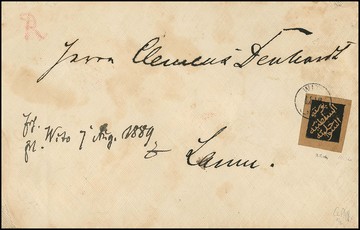 R
Herrn Clemens Denhardt
WITU
frf.
pr. Witu 7 Aug. 1889
Lamu.